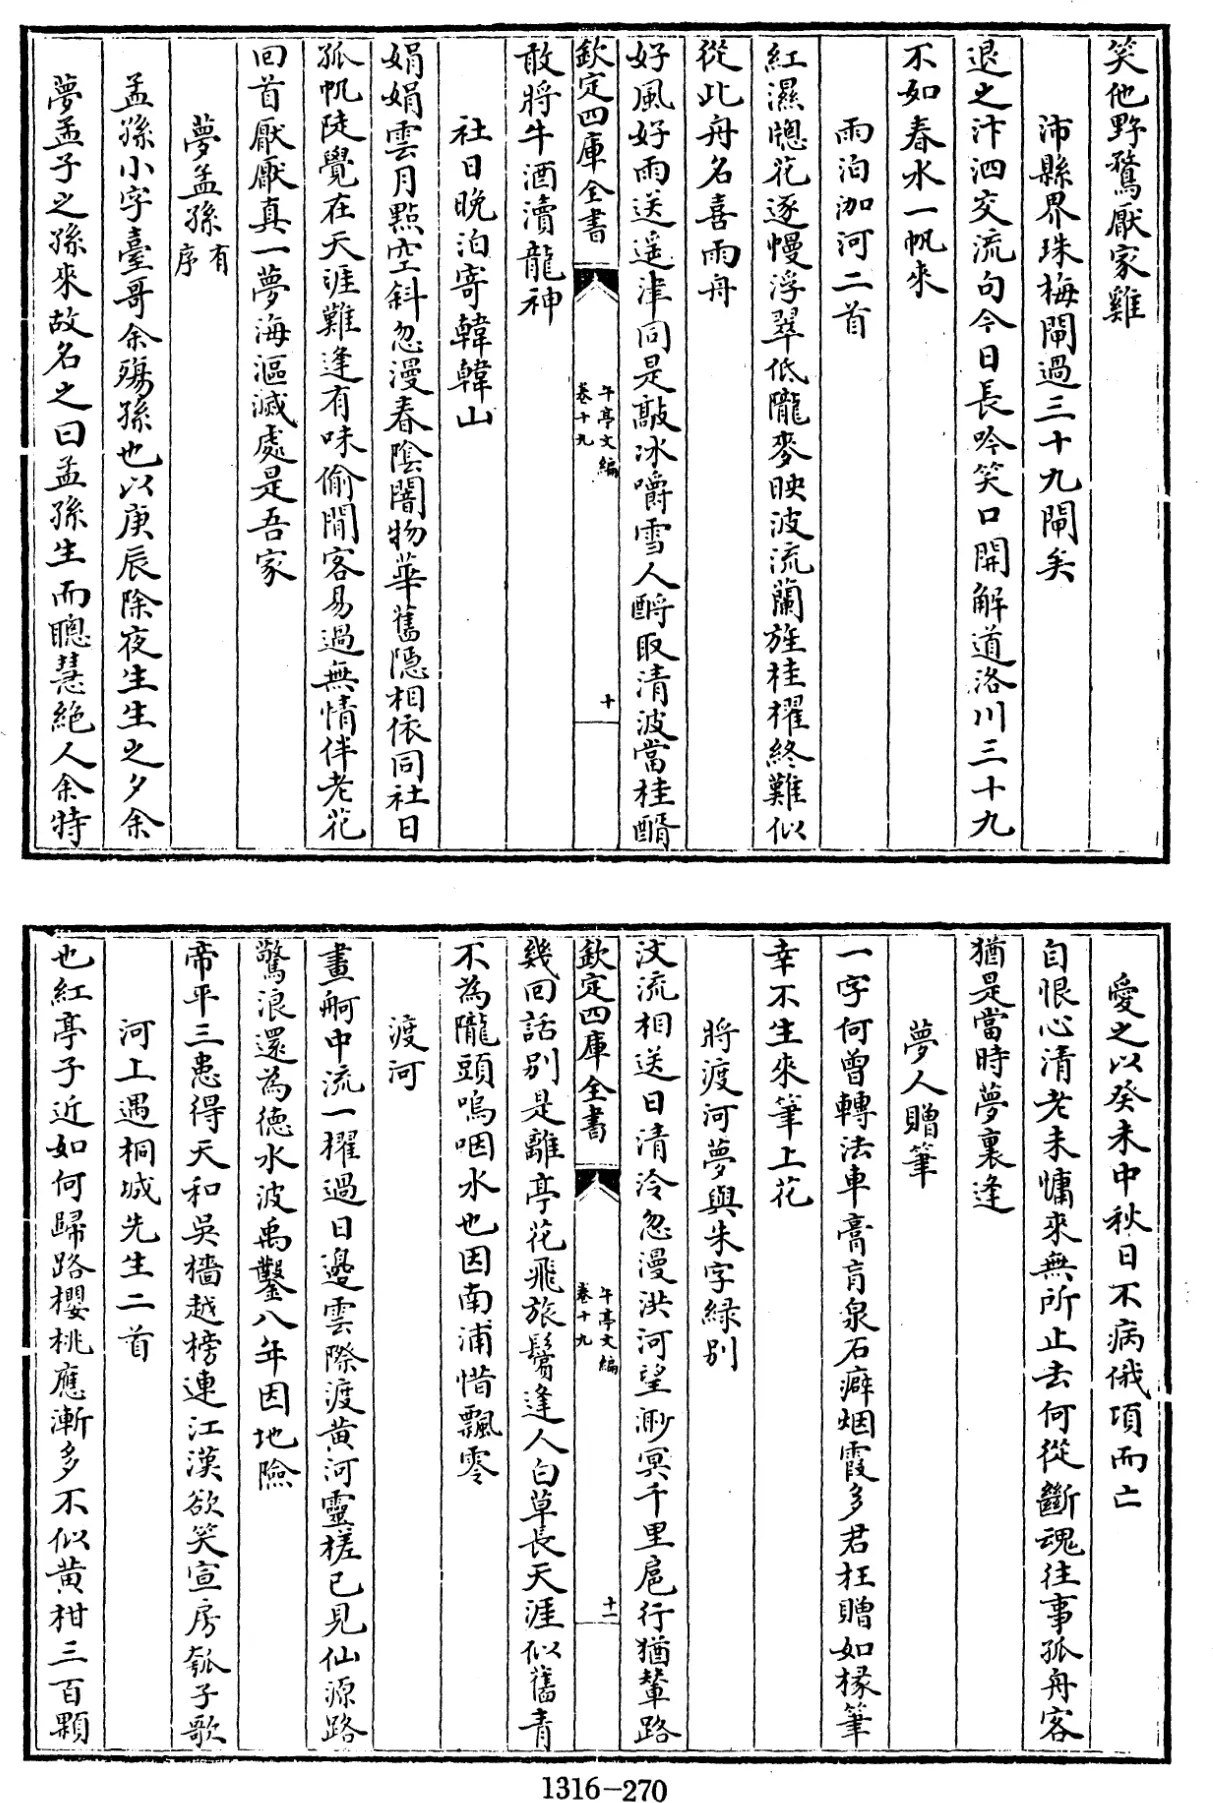 笑他野鶩厭家雞
沛縣界珠梅閘過三十九閘矣
退之汴泗交流句今日長吟笑口開解道洛川三十九
不如春水一帆來
雨泊泇河二首
紅濕牕花逐幔浮翠低隴麥映波流蘭旌桂櫂終難似
從此舟名喜雨舟
好風好雨送遥津同是敲冰嚼雪人酹取清波當桂醑
欽定四庫全書
午亭文編
卷十九
十
敢將牛酒瀆龍神
社日晚泊寄韓韓山
娟娟雲月點空斜忽漫春陰闇物華舊隠相依同社日
孤帆陡覺在天涯難逢有味偷閒客易過無情伴老花
回首厭厭真一夢海漚滅處是吾家
夢孟孫有序
孟孫小字臺哥余殤孫也以庚辰除夜生生之夕余
夢孟子之孫來故名之曰孟孫生而聰慧絶人余特
愛之以癸未中秋日不病俄頃而亡
自恨心清老未慵來無所止去何從斷魂往事孤舟客
猶是當時夢裏逢
夢人贈筆
一字何曾轉法車膏肓泉石癖烟霞多君枉贈如椽筆
幸不生來筆上花
將渡河夢與朱字緑別
汶流相送日清泠忽漫洪河望渺冥千里扈行猶輦路
欽定四庫全書
午亭文編
卷十九
十一
幾回話別是離亭花飛旅鬢逢人白草長天涯似舊青
不為隴頭嗚咽水也因南浦惜飄零
渡河
畫舸中流一櫂過日邊雲際渡黄河靈槎已見仙源路
驚浪還為德水波禹鑿八年因地險
帝平三患得天和吳檣越榜連江漢欲笑宣房瓠子歌
河上遇桐城先生二首
也紅亭子近如何歸路櫻桃應漸多不似黄柑三百顆
1316-270